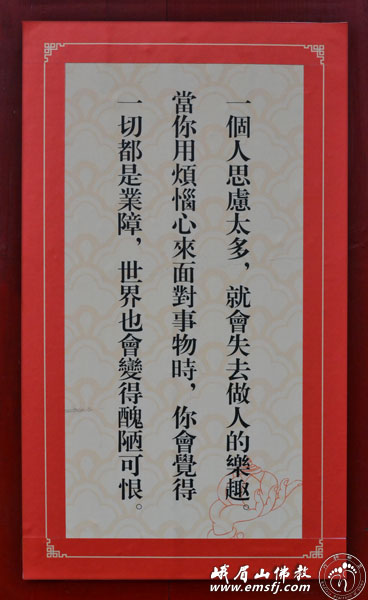 一個人思慮太多，就會失去做人的樂趣。
當你用煩惱心來面對事物時，你會覺得
一切都是業障，世界也會變得醜陋可恨。
峨眉山佛教
www.emsfj.com